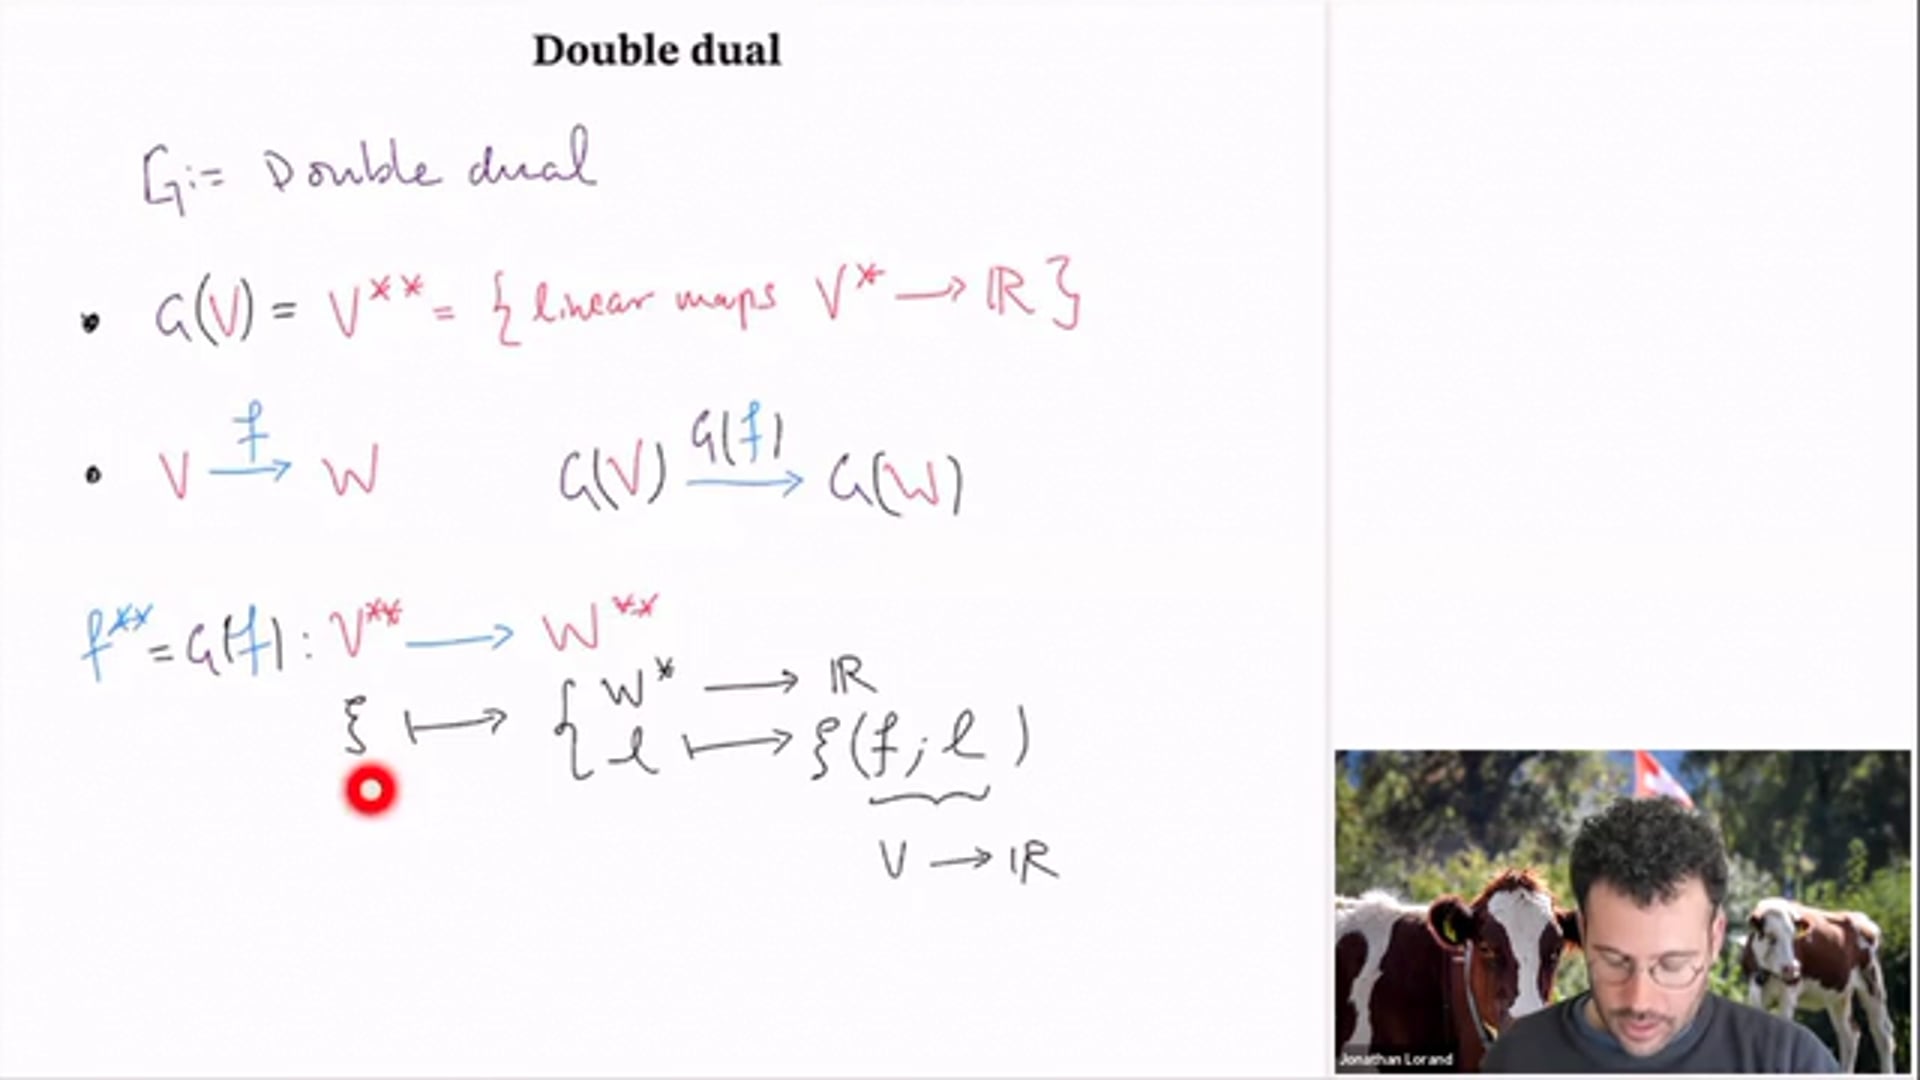 Double dual
G := Double dual
• G(V) = V** = { linear maps V* → ℝ }
• V →f W    G(V) →G(f) G(W)
f** = G(f) : V** → W**
{ W* → ℝ
ξ ↦ { l ↦ ξ(f ; l)
V → ℝ
Jonathan Lorand